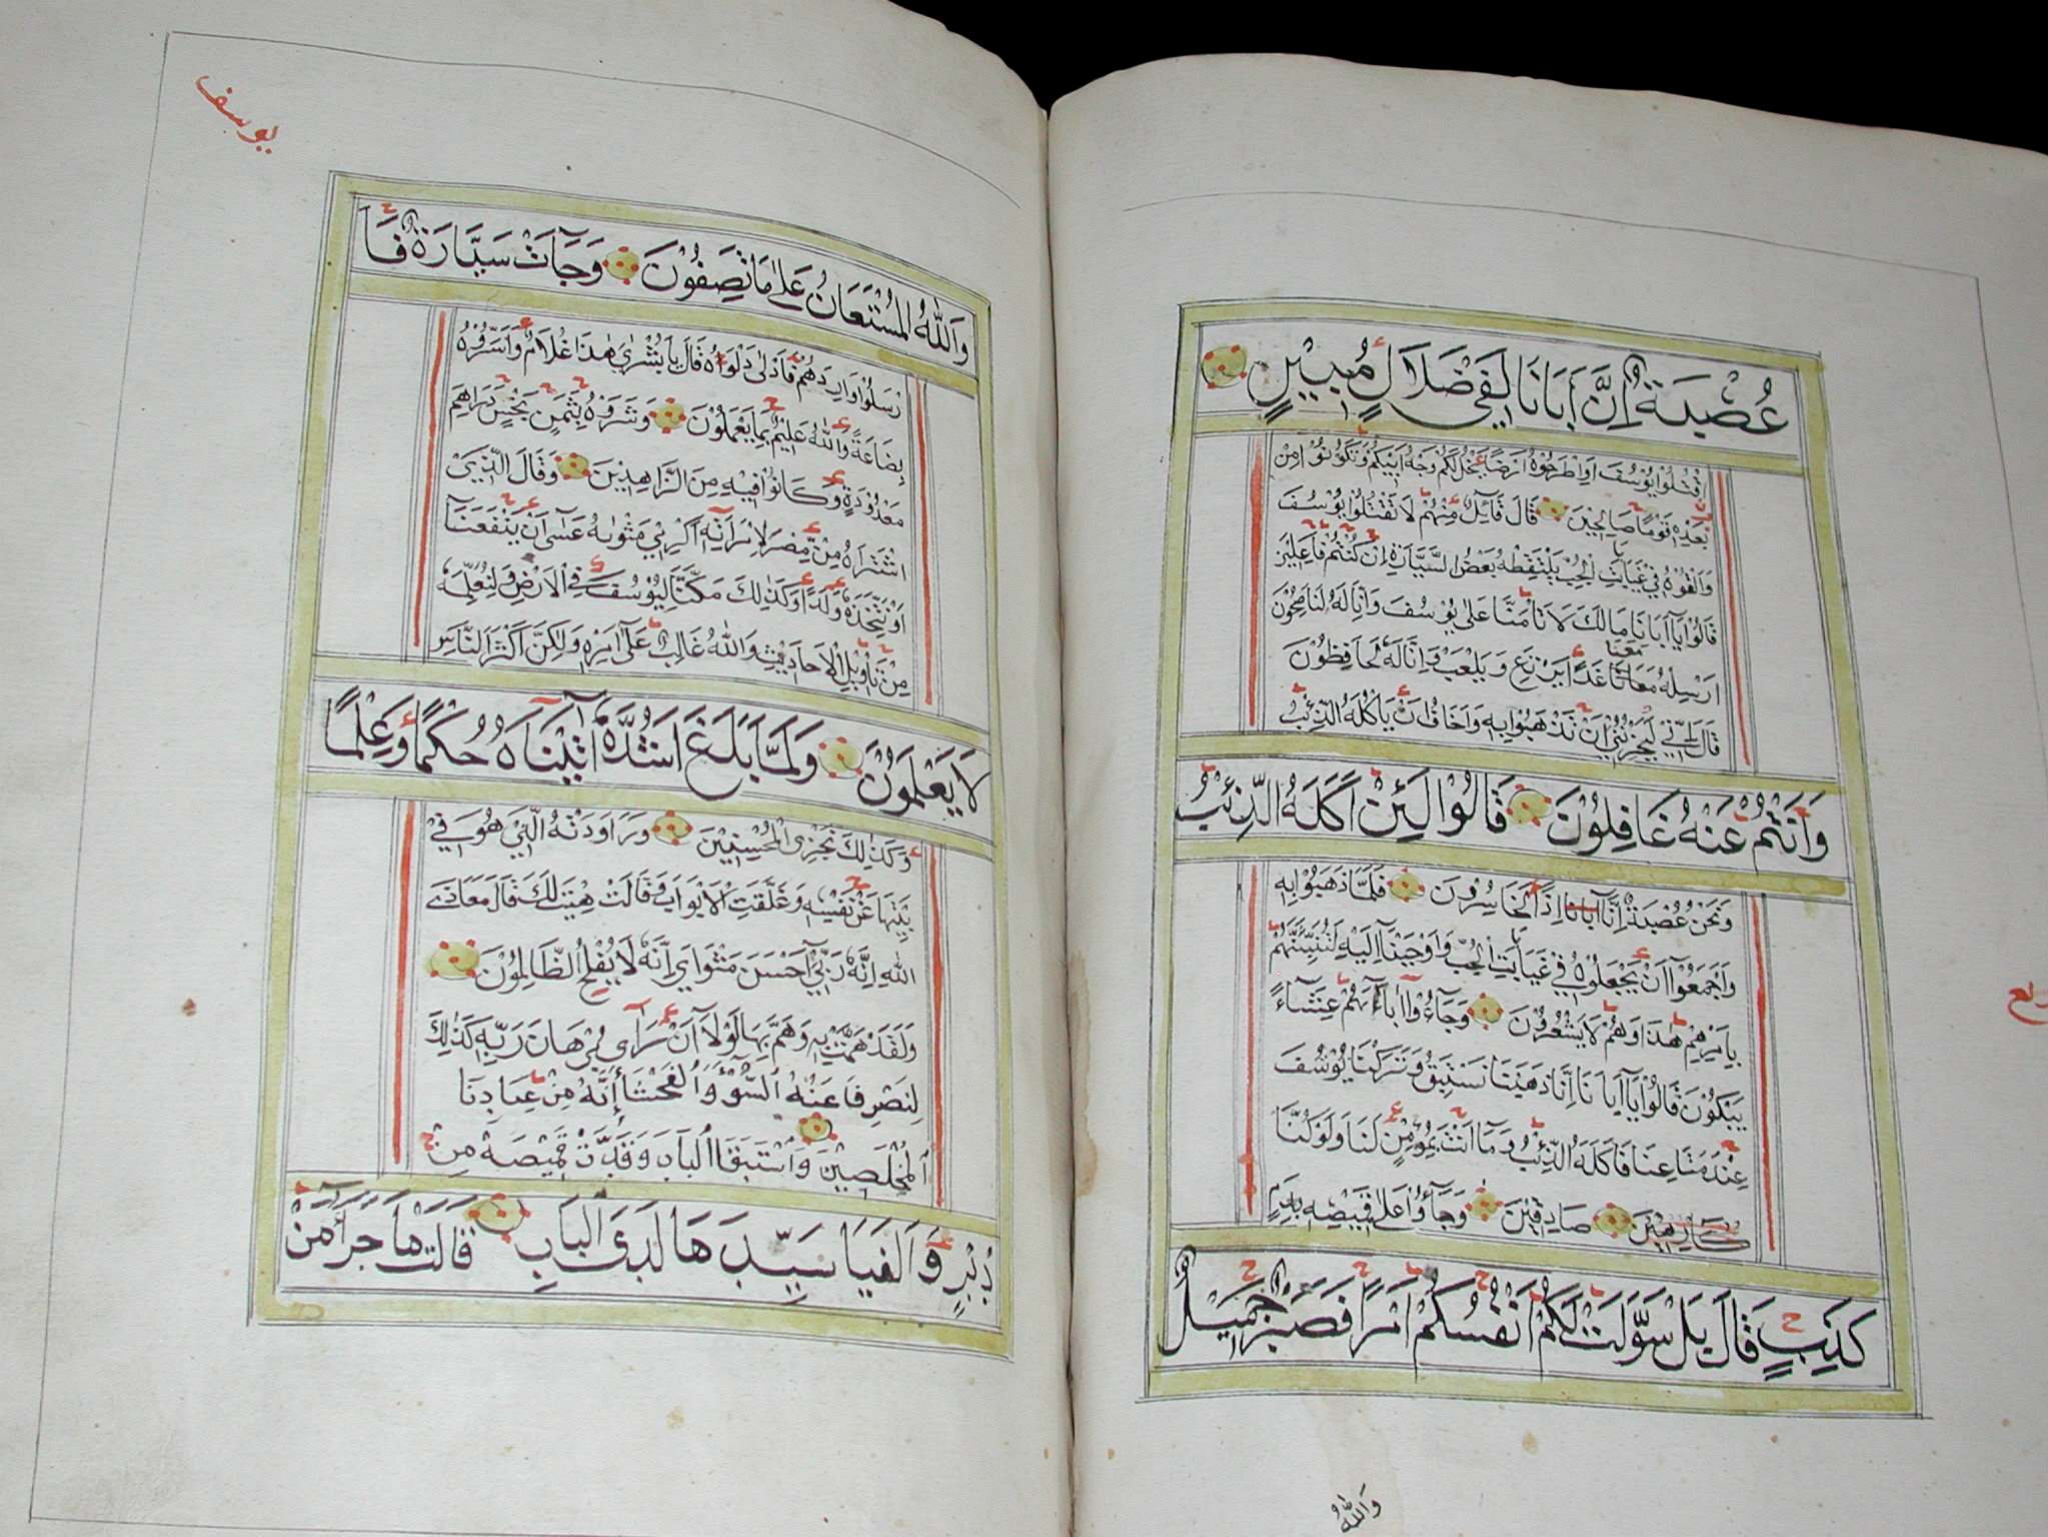 عُصْبَةٌ اِنَّ اَبَانَا لَفِي ضَلَالٍ مُبِيْنٍ
اقْتُلُوْا يُوْسُفَ اَوِاطْرَحُوْهُ اَرْضًا يَخْلُ لَكُمْ وَجْهُ اَبِيْكُمْ وَتَكُوْنُوْا مِنْ
بَعْدِهٖ قَوْمًا صَالِحِيْنَ قَالَ قَآئِلٌ مِنْهُمْ لَا تَقْتُلُوْا يُوْسُفَ
وَاَلْقُوْهُ فِيْ غَيَابَتِ الْجُبِّ يَلْتَقِطْهُ بَعْضُ السَّيَّارَةِ اِنْ كُنْتُمْ فَاعِلِيْنَ
قَالُوْا يَآ اَبَانَا مَا لَكَ لَا تَاْمَنَّا عَلٰى يُوْسُفَ وَاِنَّا لَهُ لَنَاصِحُوْنَ
اَرْسِلْهُ مَعَنَا غَدًا يَرْتَعْ وَيَلْعَبْ وَاِنَّا لَهُ لَحَافِظُوْنَ
قَالَ اِنِّيْ لَيَحْزُنُنِيْ اَنْ تَذْهَبُوْا بِهٖ وَاَخَافُ اَنْ يَاْكُلَهُ الذِّئْبُ
وَاَنْتُمْ عَنْهُ غَافِلُوْنَ قَالُوْا لَئِنْ اَكَلَهُ الذِّئْبُ
وَنَحْنُ عُصْبَةٌ اِنَّآ اِذًا لَخَاسِرُوْنَ فَلَمَّا ذَهَبُوْا بِهٖ
وَاَجْمَعُوْآ اَنْ يَجْعَلُوْهُ فِيْ غَيَابَتِ الْجُبِّ وَاَوْحَيْنَآ اِلَيْهِ لَتُنَبِّئَنَّهُمْ
بِاَمْرِهِمْ هٰذَا وَهُمْ لَا يَشْعُرُوْنَ وَجَآءُوْآ اَبَاهُمْ عِشَآءً
يَبْكُوْنَ قَالُوْا يَآ اَبَانَا اِنَّا ذَهَبْنَا نَسْتَبِقُ وَتَرَكْنَا يُوْسُفَ
عِنْدَ مَتَاعِنَا فَاَكَلَهُ الذِّئْبُ وَمَآ اَنْتَ بِمُؤْمِنٍ لَنَا وَلَوْ كُنَّا
صَادِقِيْنَ وَجَآءُوْا عَلٰى قَمِيْصِهٖ بِدَمٍ
كَذِبٍ قَالَ بَلْ سَوَّلَتْ لَكُمْ اَنْفُسُكُمْ اَمْرًا فَصَبْرٌ جَمِيْلٌ
وَاللّٰهُ
يوسف
وَاللّٰهُ الْمُسْتَعَانُ عَلٰى مَا تَصِفُوْنَ وَجَآءَتْ سَيَّارَةٌ فَاَ
رْسَلُوْا وَارِدَهُمْ فَاَدْلٰى دَلْوَهُ قَالَ يَا بُشْرٰى هٰذَا غُلَامٌ وَاَسَرُّوْهُ
بِضَاعَةً وَاللّٰهُ عَلِيْمٌ بِمَا يَعْمَلُوْنَ وَشَرَوْهُ بِثَمَنٍ بَخْسٍ دَرَاهِمَ
مَعْدُوْدَةٍ وَكَانُوْا فِيْهِ مِنَ الزَّاهِدِيْنَ وَقَالَ الَّذِيْ
اشْتَرَاهُ مِنْ مِصْرَ لِامْرَاَتِهٖ اَكْرِمِيْ مَثْوٰىهُ عَسٰٓى اَنْ يَنْفَعَنَآ
اَوْ نَتَّخِذَهُ وَلَدًا وَكَذٰلِكَ مَكَّنَّا لِيُوْسُفَ فِي الْاَرْضِ وَلِنُعَلِّمَهُ
مِنْ تَاْوِيْلِ الْاَحَادِيْثِ وَاللّٰهُ غَالِبٌ عَلٰٓى اَمْرِهٖ وَلٰكِنَّ اَكْثَرَ النَّاسِ
لَا يَعْلَمُوْنَ وَلَمَّا بَلَغَ اَشُدَّهُ اٰتَيْنَاهُ حُكْمًا وَعِلْمًا
وَكَذٰلِكَ نَجْزِى الْمُحْسِنِيْنَ وَرَاوَدَتْهُ الَّتِيْ هُوَ فِيْ
بَيْتِهَا عَنْ نَفْسِهٖ وَغَلَّقَتِ الْاَبْوَابَ وَقَالَتْ هَيْتَ لَكَ قَالَ مَعَاذَ
اللّٰهِ اِنَّهُ رَبِّيْٓ اَحْسَنَ مَثْوَايَ اِنَّهُ لَا يُفْلِحُ الظَّالِمُوْنَ
وَلَقَدْ هَمَّتْ بِهٖ وَهَمَّ بِهَا لَوْلَآ اَنْ رَاٰى بُرْهَانَ رَبِّهٖ كَذٰلِكَ
لِنَصْرِفَ عَنْهُ السُّوْٓءَ وَالْفَحْشَآءَ اِنَّهُ مِنْ عِبَادِنَا
الْمُخْلَصِيْنَ وَاسْتَبَقَا الْبَابَ وَقَدَّتْ قَمِيْصَهُ مِنْ
دُبُرٍ وَاَلْفَيَا سَيِّدَهَا لَدَى الْبَابِ قَالَتْ مَا جَزَآءُ مَنْ